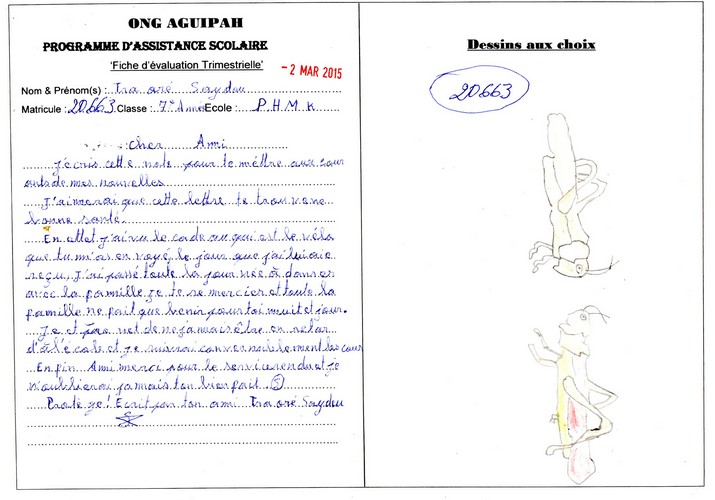 ONG AGUIPAH
PROGRAMME D'ASSISTANCE SCOLAIRE
'Fiche d'évaluation Trimestrielle'
- 2 MAR 2015
Nom & Prénom(s) : Traoré Saydou
Matricule : 20.663 Classe : 7e Année Ecole : P.H.M.K
Cher Ami
J'écris cette note pour te mettre aux cour
ants de mes nouvelles
J'aimerai que cette lettre te trouve ne
bonne santé.
En effet j'ai vu le cadeau qui est le vélo
que tu m'as en voyé, le jour que j'ai lui aie
reçu, j'ai passé toute la journée à danser
avec la famille je te remercier et toute la
famille ne fait que benir pour toi nuit et jour.
Je et promet de ne jamais être en retar
d à l'école et je suivrai convenablement les cour
En fin Ami merci pour le service rendu et je
n'oublierai jamais ton bien fait.
Protège! Ecrit par ton ami Traoré Saydou
Dessins aux choix
20663